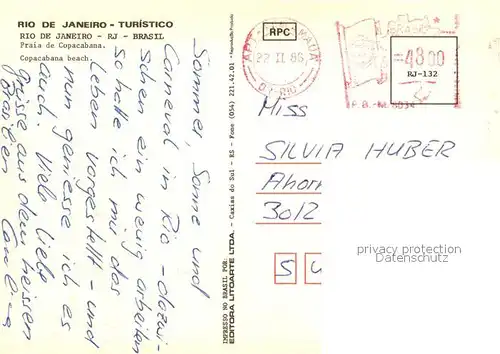 RIO DE JANEIRO - TURÍSTICO
RIO DE JANEIRO - RJ - BRASIL
Praia de Copacabana.
Copacabana beach.
Sommer, Sonne und
Carneval in Rio - dazwi-
schen ein wenig arbeiten
so hatte ich mir das
Leben vorgestellt - und
nun geniesse ich es
auch. Viele liebe
Grüsse aus dem heissen
Brasilien
IMPRESSO NO BRASIL POR:
EDITORA LITOARTE LTDA. - Caxias do Sul - RS - Fone (054) 221.42.01 -
APC
MAUÁ
22 II 86
4800
RJ-132
P.B.-M.
Miss
SILVIA HUBER
Ahorn
3012
S
privacy protection
Datenschutz